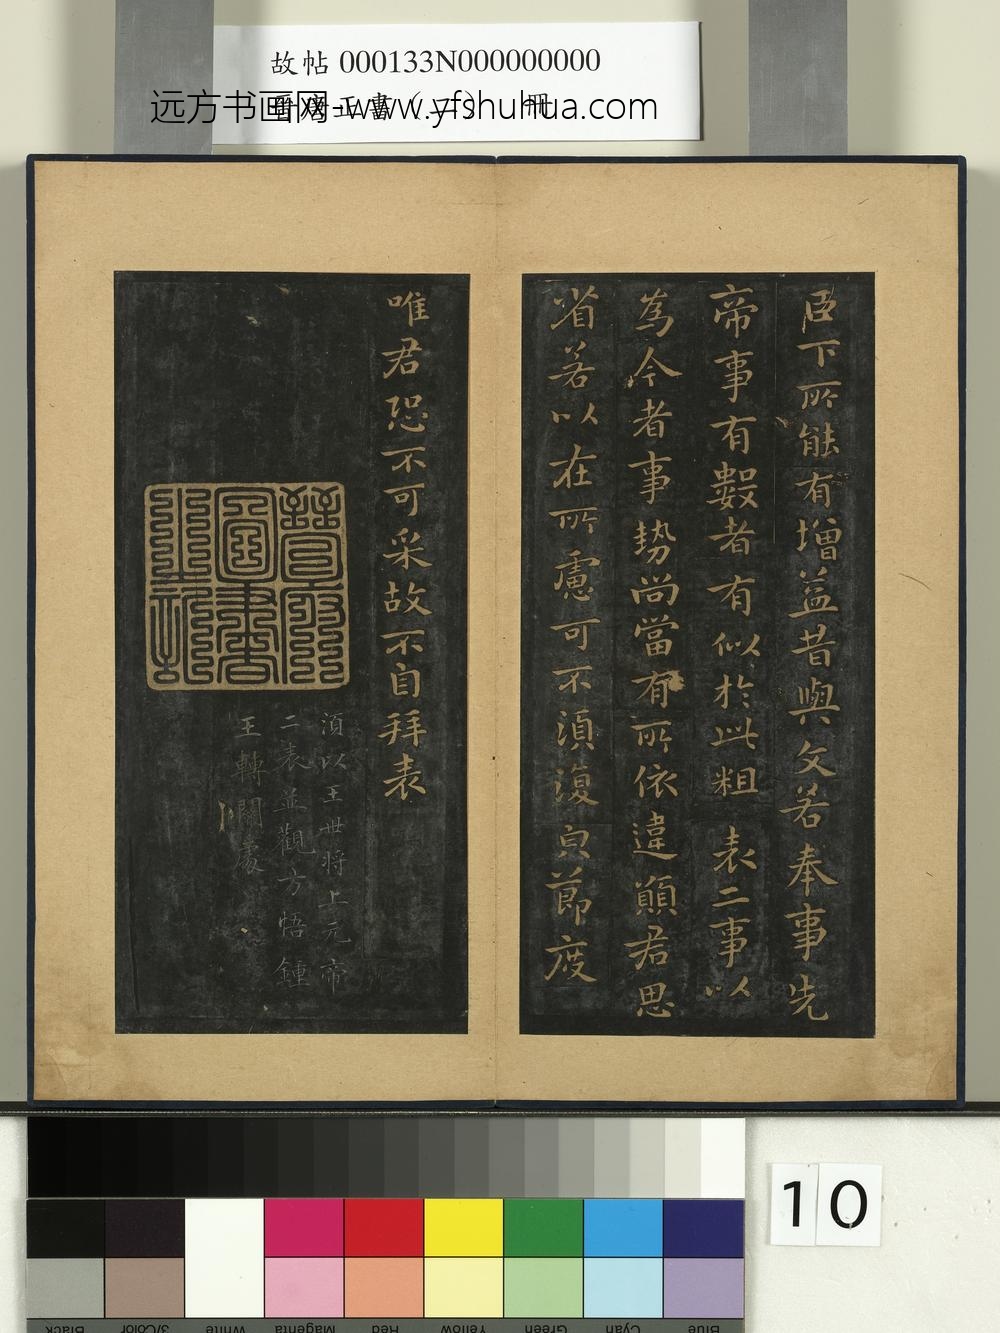 故帖 000133N000000000
远方书画网-www.yfshuhua.com
冊
臣下所能有增益昔與文若奉事先
帝事有數者有似於此粗表二事以
為今者事勢尚當有所依違願君思
省若以在所慮可不須復皃節度
唯君恐不可采故不自拜表
須以王世将上元帝
二表並觀方悟鍾
王轉關處
10
Black
3/Color
White
Magenta
Red
Yellow
Green
Cyan
Blue